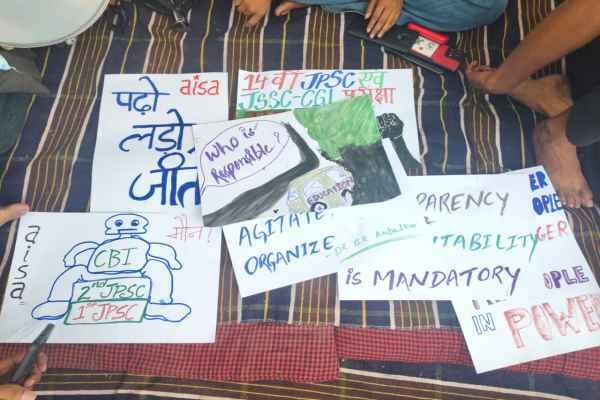 पढ़ो
लड़ो
जीत
aisa
14 वीं JPSC एवं
JSSC-CGL परीक्षा
Who is
Responsible?
EDUCATION
aisa
मौन?
CBI
2nd JPSC
1st JPSC
AGITATE
ORGANIZE
-DR B.R Ambedkar
PARENCY
&
TABILITY
is MANDATORY
ER
OPLE
GER
OPLE
IN POWER